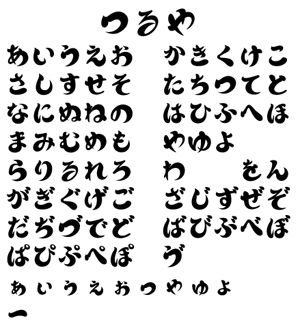 つるや
あいうえお かきくけこ
さしすせそ たちつてと
なにぬねの はひふへほ
まみむめも やゆよ
らりるれろ わ をん
がぎぐげご ざじずぜぞ
だぢづでど ばびぶべぼ
ぱぴぷぺぽ ゔ
ぁぃぅぇぉっゃゅょ
ー